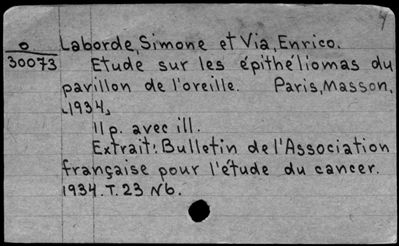 4
o Laborde, Simone et Via, Enrico.
30073 Etude sur les épithéliomas du
pavillon de l'oreille. Paris, Masson,
1934,
11 p. avec ill.
Extrait: Bulletin de l'Association
française pour l'étude du cancer.
1934. T. 23 N6.